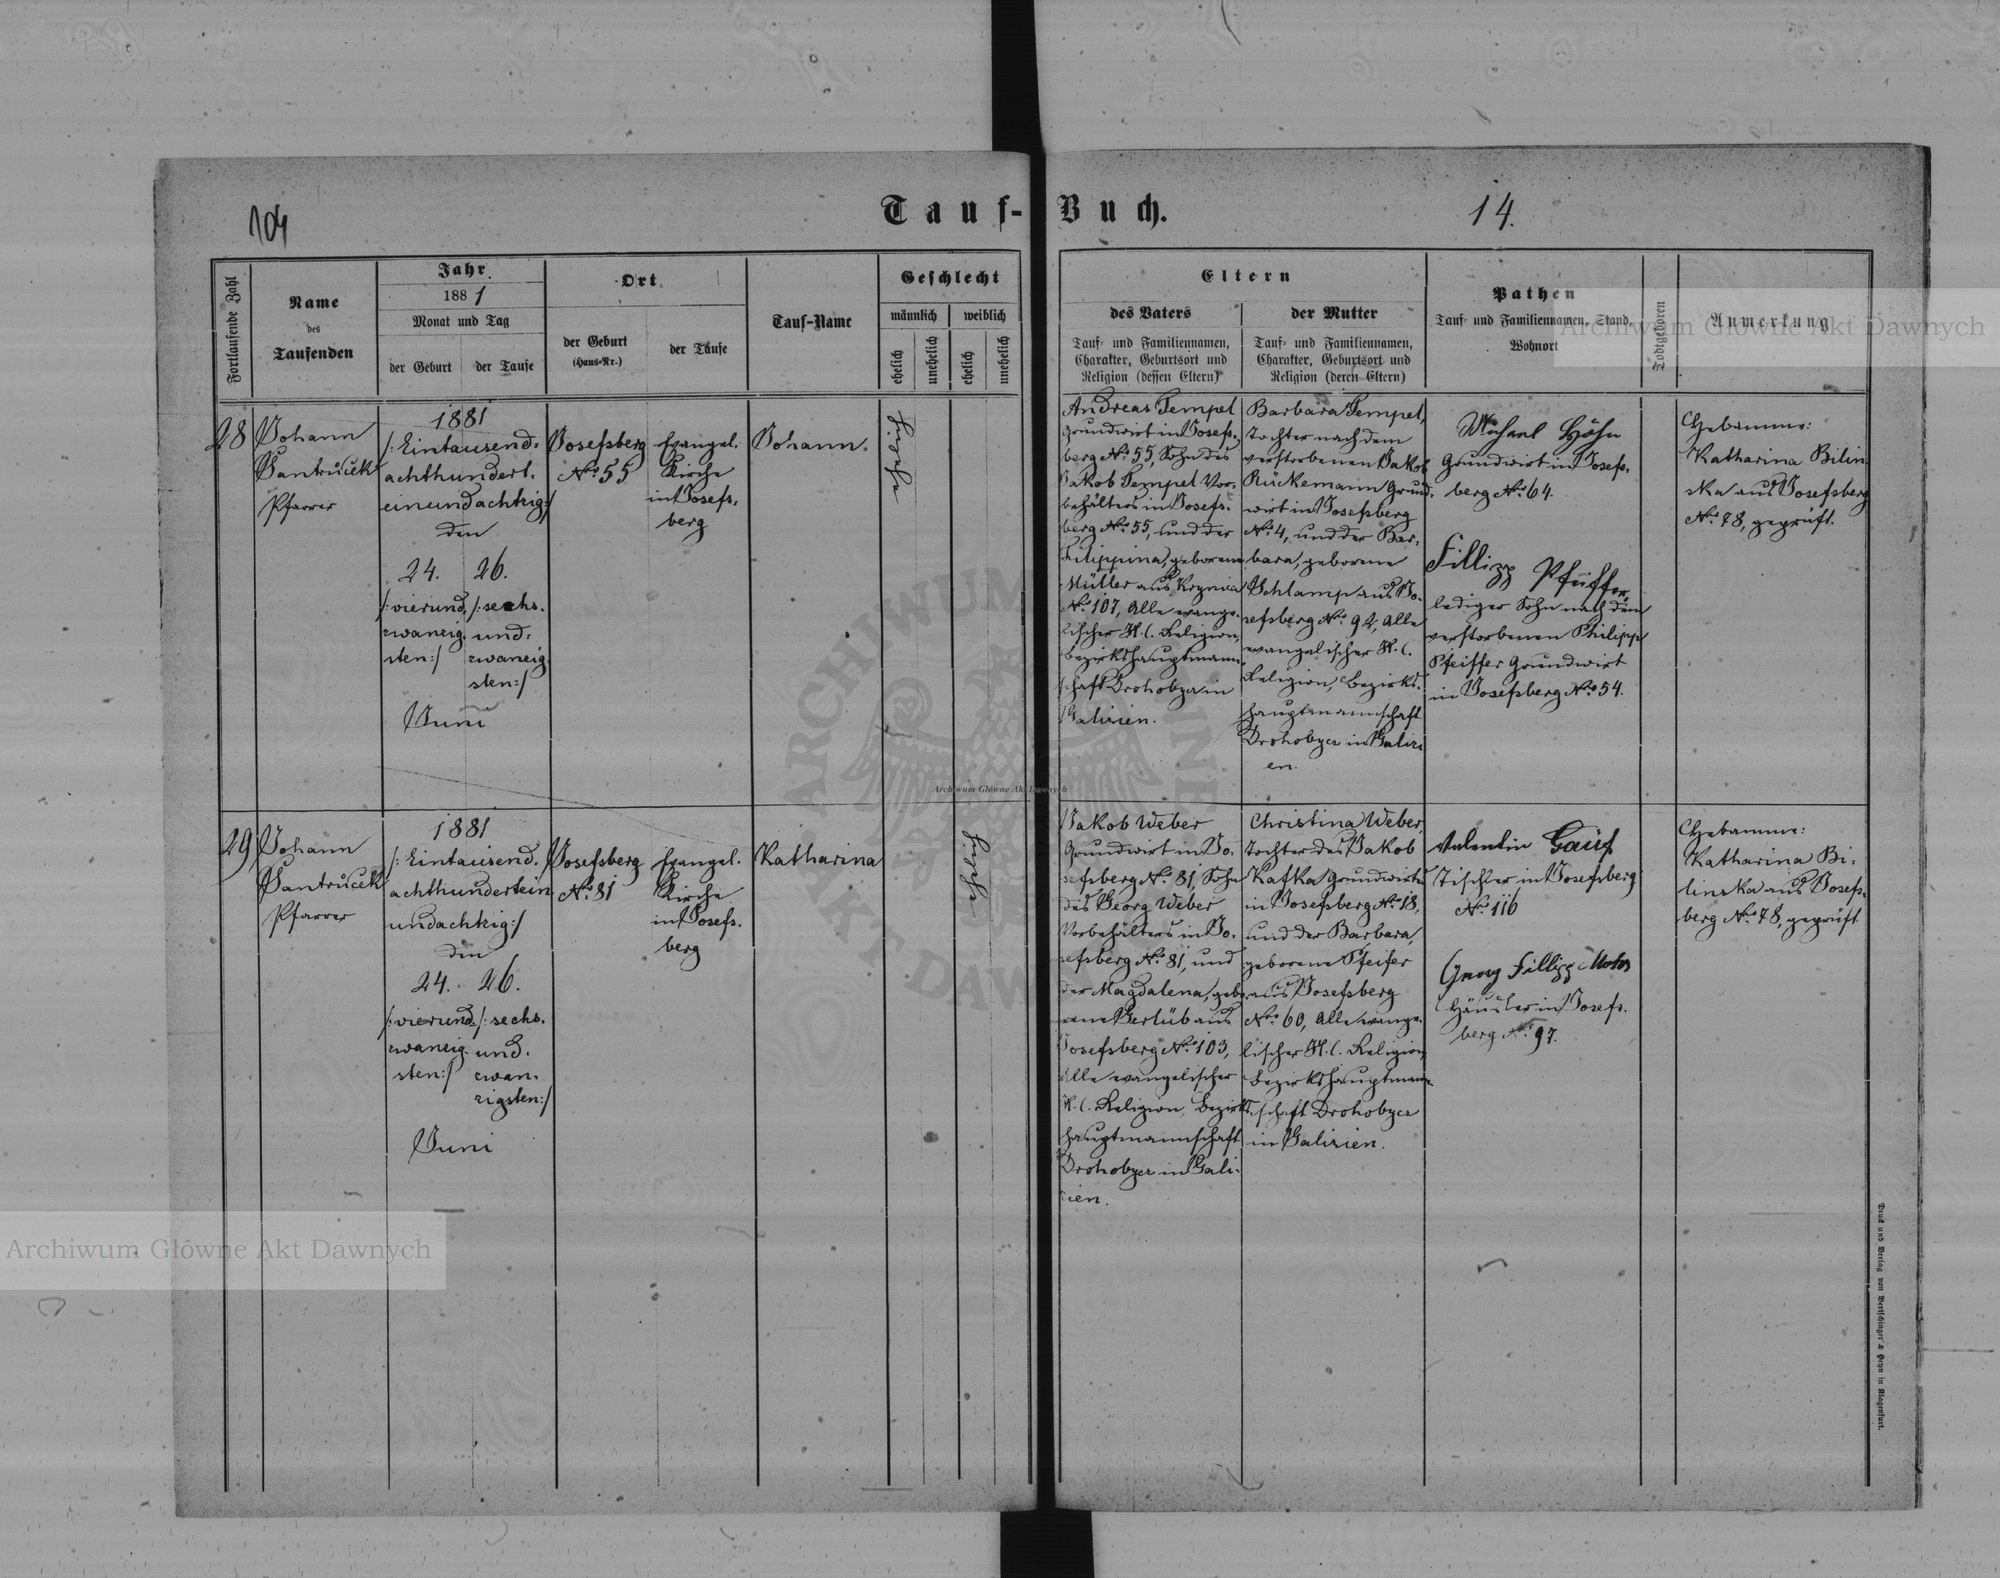 104
Tauf-Buch.
14.
Fortlaufende Zahl
Name
des
Taufenden
Jahr
1881
Monat und Tag
der Geburt
der Taufe
Ort
der Geburt
(Haus-Nr.)
der Taufe
Tauf-Name
Geschlecht
männlich
weiblich
ehelich
unehelich
ehelich
unehelich
Eltern
des Vaters
Tauf- und Familiennamen,
Charakter, Geburtsort und
Religion (dessen Eltern)
der Mutter
Tauf- und Familiennamen,
Charakter, Geburtsort und
Religion (deren Eltern)
Pathen
Tauf- und Familiennamen, Stand,
Wohnort
Todtgeboren
Anmerkung
28
Johann
Jantrucek
Pfarrer
1881
/:Eintausend-
achthundert.
einundachtzig:/
den
24.
/:vierund.
zwanzig.
sten:/
26.
/:sechs.
und-
zwanzig.
sten:/
Juni
Josefsberg
No. 55
Evangel.
Kirche
in Josefs.
berg
Johann.
Andreas Tempel
Grundwirt in Josefs-
berg No. 55, Sohn des
Jakob Tempel Vor-
behälters in Josefs-
berg No. 55, und der
Filippina, geborene
Müller aus Krynica
No. 107, Alle evange-
lischer H.C. Religion,
Bezirkshauptmann-
schaft Drohobycz in
Galizien.
Barbara Tempel,
Tochter nach dem
verstorbenen Jakob
Rückemann Grund-
wirt in Josefsberg
No. 4, und der Bar-
bara, geborene
Schlamp aus Jo-
sefsberg No. 92, Alle
evangelischer H.C.
Religion, Bezirks-
hauptmannschaft
Drohobycz in Galizi
en.
Michael Höhn
Grundwirt in Josefs-
berg No. 64.
Fillipp Pfeiffer,
lediger Sohn nach dem
verstorbenen Philipp
Pfeiffer Grundwirt
in Josefsberg No. 54.
Hebamme:
Katharina Bilin
ska aus Josefsberg
No. 78, geprüft.
29
Johann
Jantrucek
Pfarrer
1881
/:Eintausend.
achthundertein
undachtzig:/
den
24.
/:vierund.
zwanzig.
sten:/
26.
/:sechs.
und.
zwan.
zigsten:/
Juni
Josefsberg
No. 81
Evangel.
Kirche
in Josefs.
berg
Katharina
Jakob Weber
Grundwirt in Jo-
sefsberg No. 81, Sohn
des Georg Weber
Vorbehälters in Jo-
sefsberg No. 81, und
der Magdalena, gebo
rene Gerlüb aus
Josefsberg No. 103,
Alle evangelischer
H.C. Religion, Bezirks
hauptmannschaft
Drohobycz in Gali-
zien.
Christina Weber,
Tochter des Jakob
Kafka Grundwirts
in Josefsberg No. 18,
und der Barbara,
geborene Pfeifer
aus Josefsberg
No. 60, Alle evange-
lischer H.C. Religion,
Bezirkshauptmann-
schaft Drohobycz
in Galizien.
Valentin Gauf
Tischler in Josefsberg
No. 116
Georg Fillipp
Häusler in Josefs-
berg No. 97.
Hebamme:
Katharina Bi-
linska aus Josefs-
berg No. 78, geprüft
Druck und Verlag von Bertschinger & Heyn in Klagenfurt.
Archiwum Główne Akt Dawnych
Archiwum Główne Akt Dawnych
Archiwum Główne Akt Dawnych